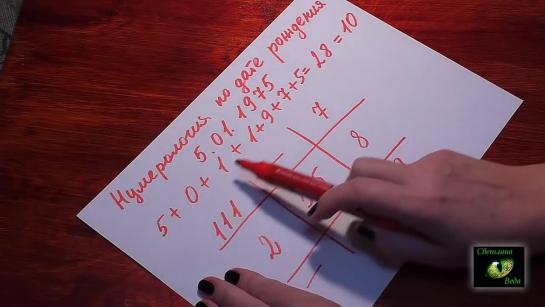 Нумерология по дате рождения
5.01.1975
5+0+1+1+9+7+5=28=10
111
7
8
2
Светлана
Веда